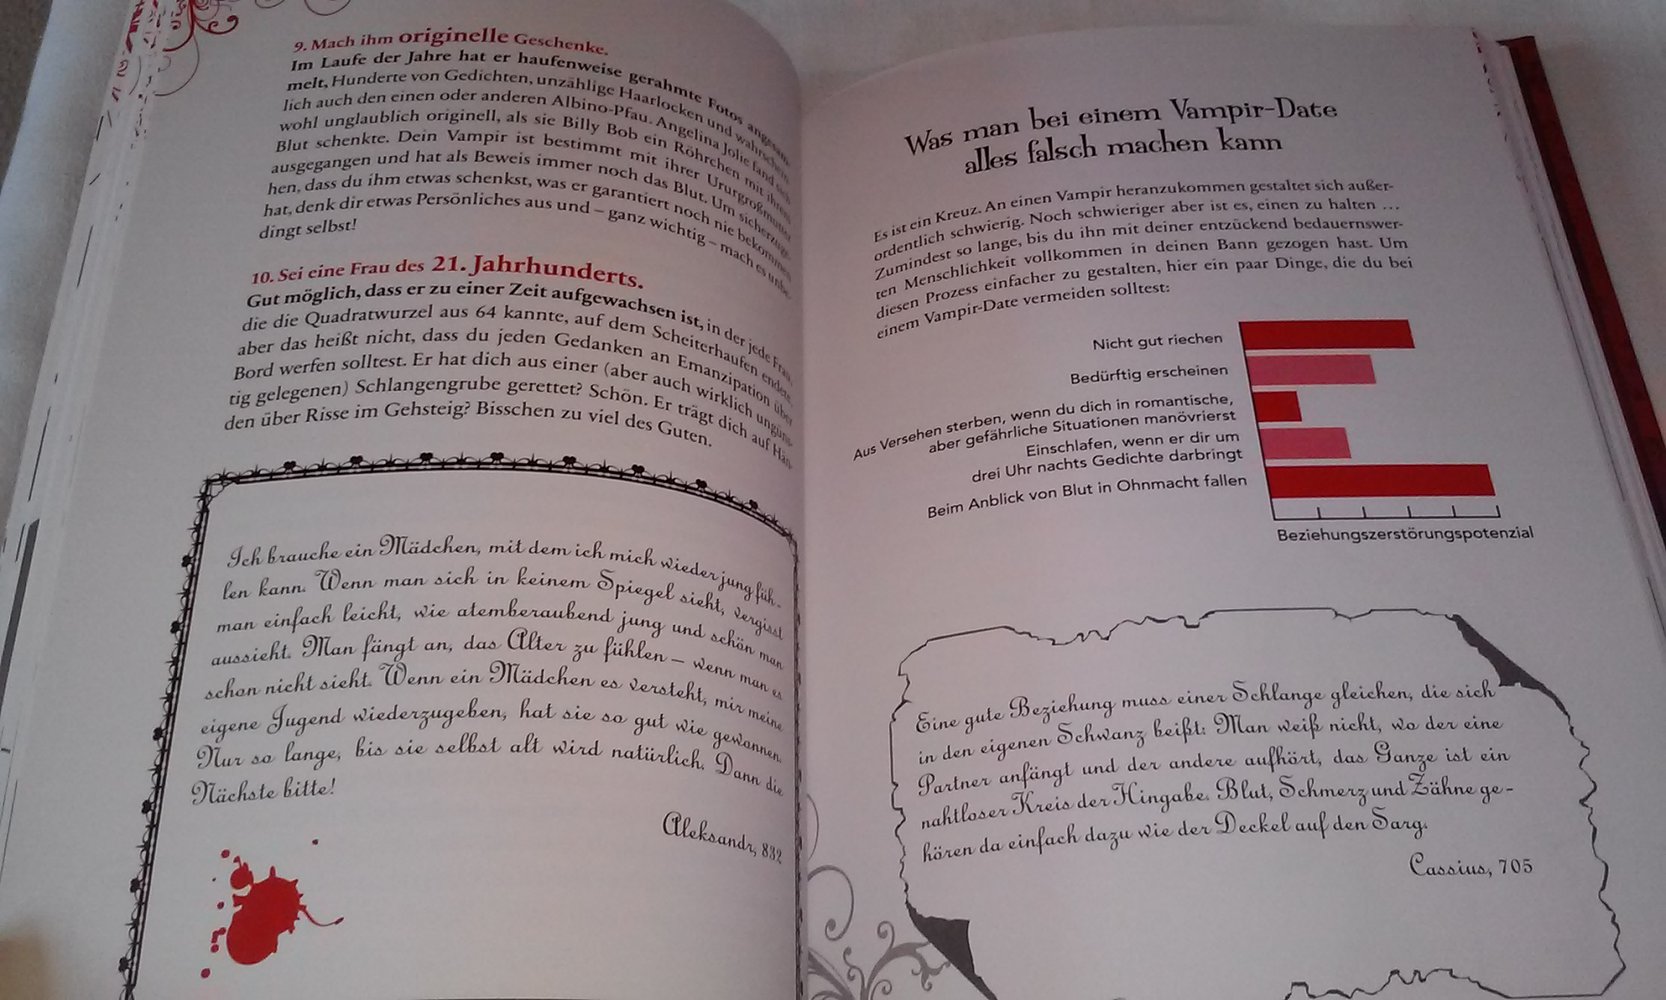 9. Mach ihm originelle Geschenke.
Im Laufe der Jahre hat er haufenweise gerahmte Fotos angesam-
melt, Hunderte von Gedichten, unzählige Haarlocken und wahrschein-
lich auch den einen oder anderen Albino-Pfau. Angelina Jolie fand sich
wohl unglaublich originell, als sie Billy Bob ein Röhrchen mit ihrem
Blut schenkte. Dein Vampir ist bestimmt mit ihrer Ururgroßmutter
ausgegangen und hat als Beweis immer noch das Blut. Um sicherzuge-
hen, dass du ihm etwas schenkst, was er garantiert noch nie bekommen
hat, denk dir etwas Persönliches aus und – ganz wichtig – mach es unbe-
dingt selbst!
10. Sei eine Frau des 21. Jahrhunderts.
Gut möglich, dass er zu einer Zeit aufgewachsen ist, in der jede Frau,
die die Quadratwurzel aus 64 kannte, auf dem Scheiterhaufen endete,
aber das heißt nicht, dass du jeden Gedanken an Emanzipation über
Bord werfen solltest. Er hat dich aus einer (aber auch wirklich ungüns-
tig gelegenen) Schlangengrube gerettet? Schön. Er trägt dich auf Hän-
den über Risse im Gehsteig? Bisschen zu viel des Guten.
Ich brauche ein Mädchen, mit dem ich mich wieder jung füh-
len kann. Wenn man sich in keinem Spiegel sieht, vergisst
man einfach leicht, wie atemberaubend jung und schön man
aussieht. Man fängt an, das Alter zu fühlen – wenn man es
schon nicht sieht. Wenn ein Mädchen es versteht, mir meine
eigene Jugend wiederzugeben, hat sie so gut wie gewonnen.
Nur so lange, bis sie selbst alt wird natürlich. Dann die
Nächste bitte!
Aleksandr, 832
Was man bei einem Vampir-Date
alles falsch machen kann
Es ist ein Kreuz. An einen Vampir heranzukommen gestaltet sich außer-
ordentlich schwierig. Noch schwieriger aber ist es, einen zu halten ...
Zumindest so lange, bis du ihn mit deiner entzückend bedauernswer-
ten Menschlichkeit vollkommen in deinen Bann gezogen hast. Um
diesen Prozess einfacher zu gestalten, hier ein paar Dinge, die du bei
einem Vampir-Date vermeiden solltest:
Nicht gut riechen
Bedürftig erscheinen
Aus Versehen sterben, wenn du dich in romantische,
aber gefährliche Situationen manövrierst
Einschlafen, wenn er dir um
drei Uhr nachts Gedichte darbringt
Beim Anblick von Blut in Ohnmacht fallen
Beziehungszerstörungspotenzial
Eine gute Beziehung muss einer Schlange gleichen, die sich
in den eigenen Schwanz beißt: Man weiß nicht, wo der eine
Partner anfängt und der andere aufhört, das Ganze ist ein
nahtloser Kreis der Hingabe. Blut, Schmerz und Zähne ge-
hören da einfach dazu wie der Deckel auf den Sarg.
Cassius, 705